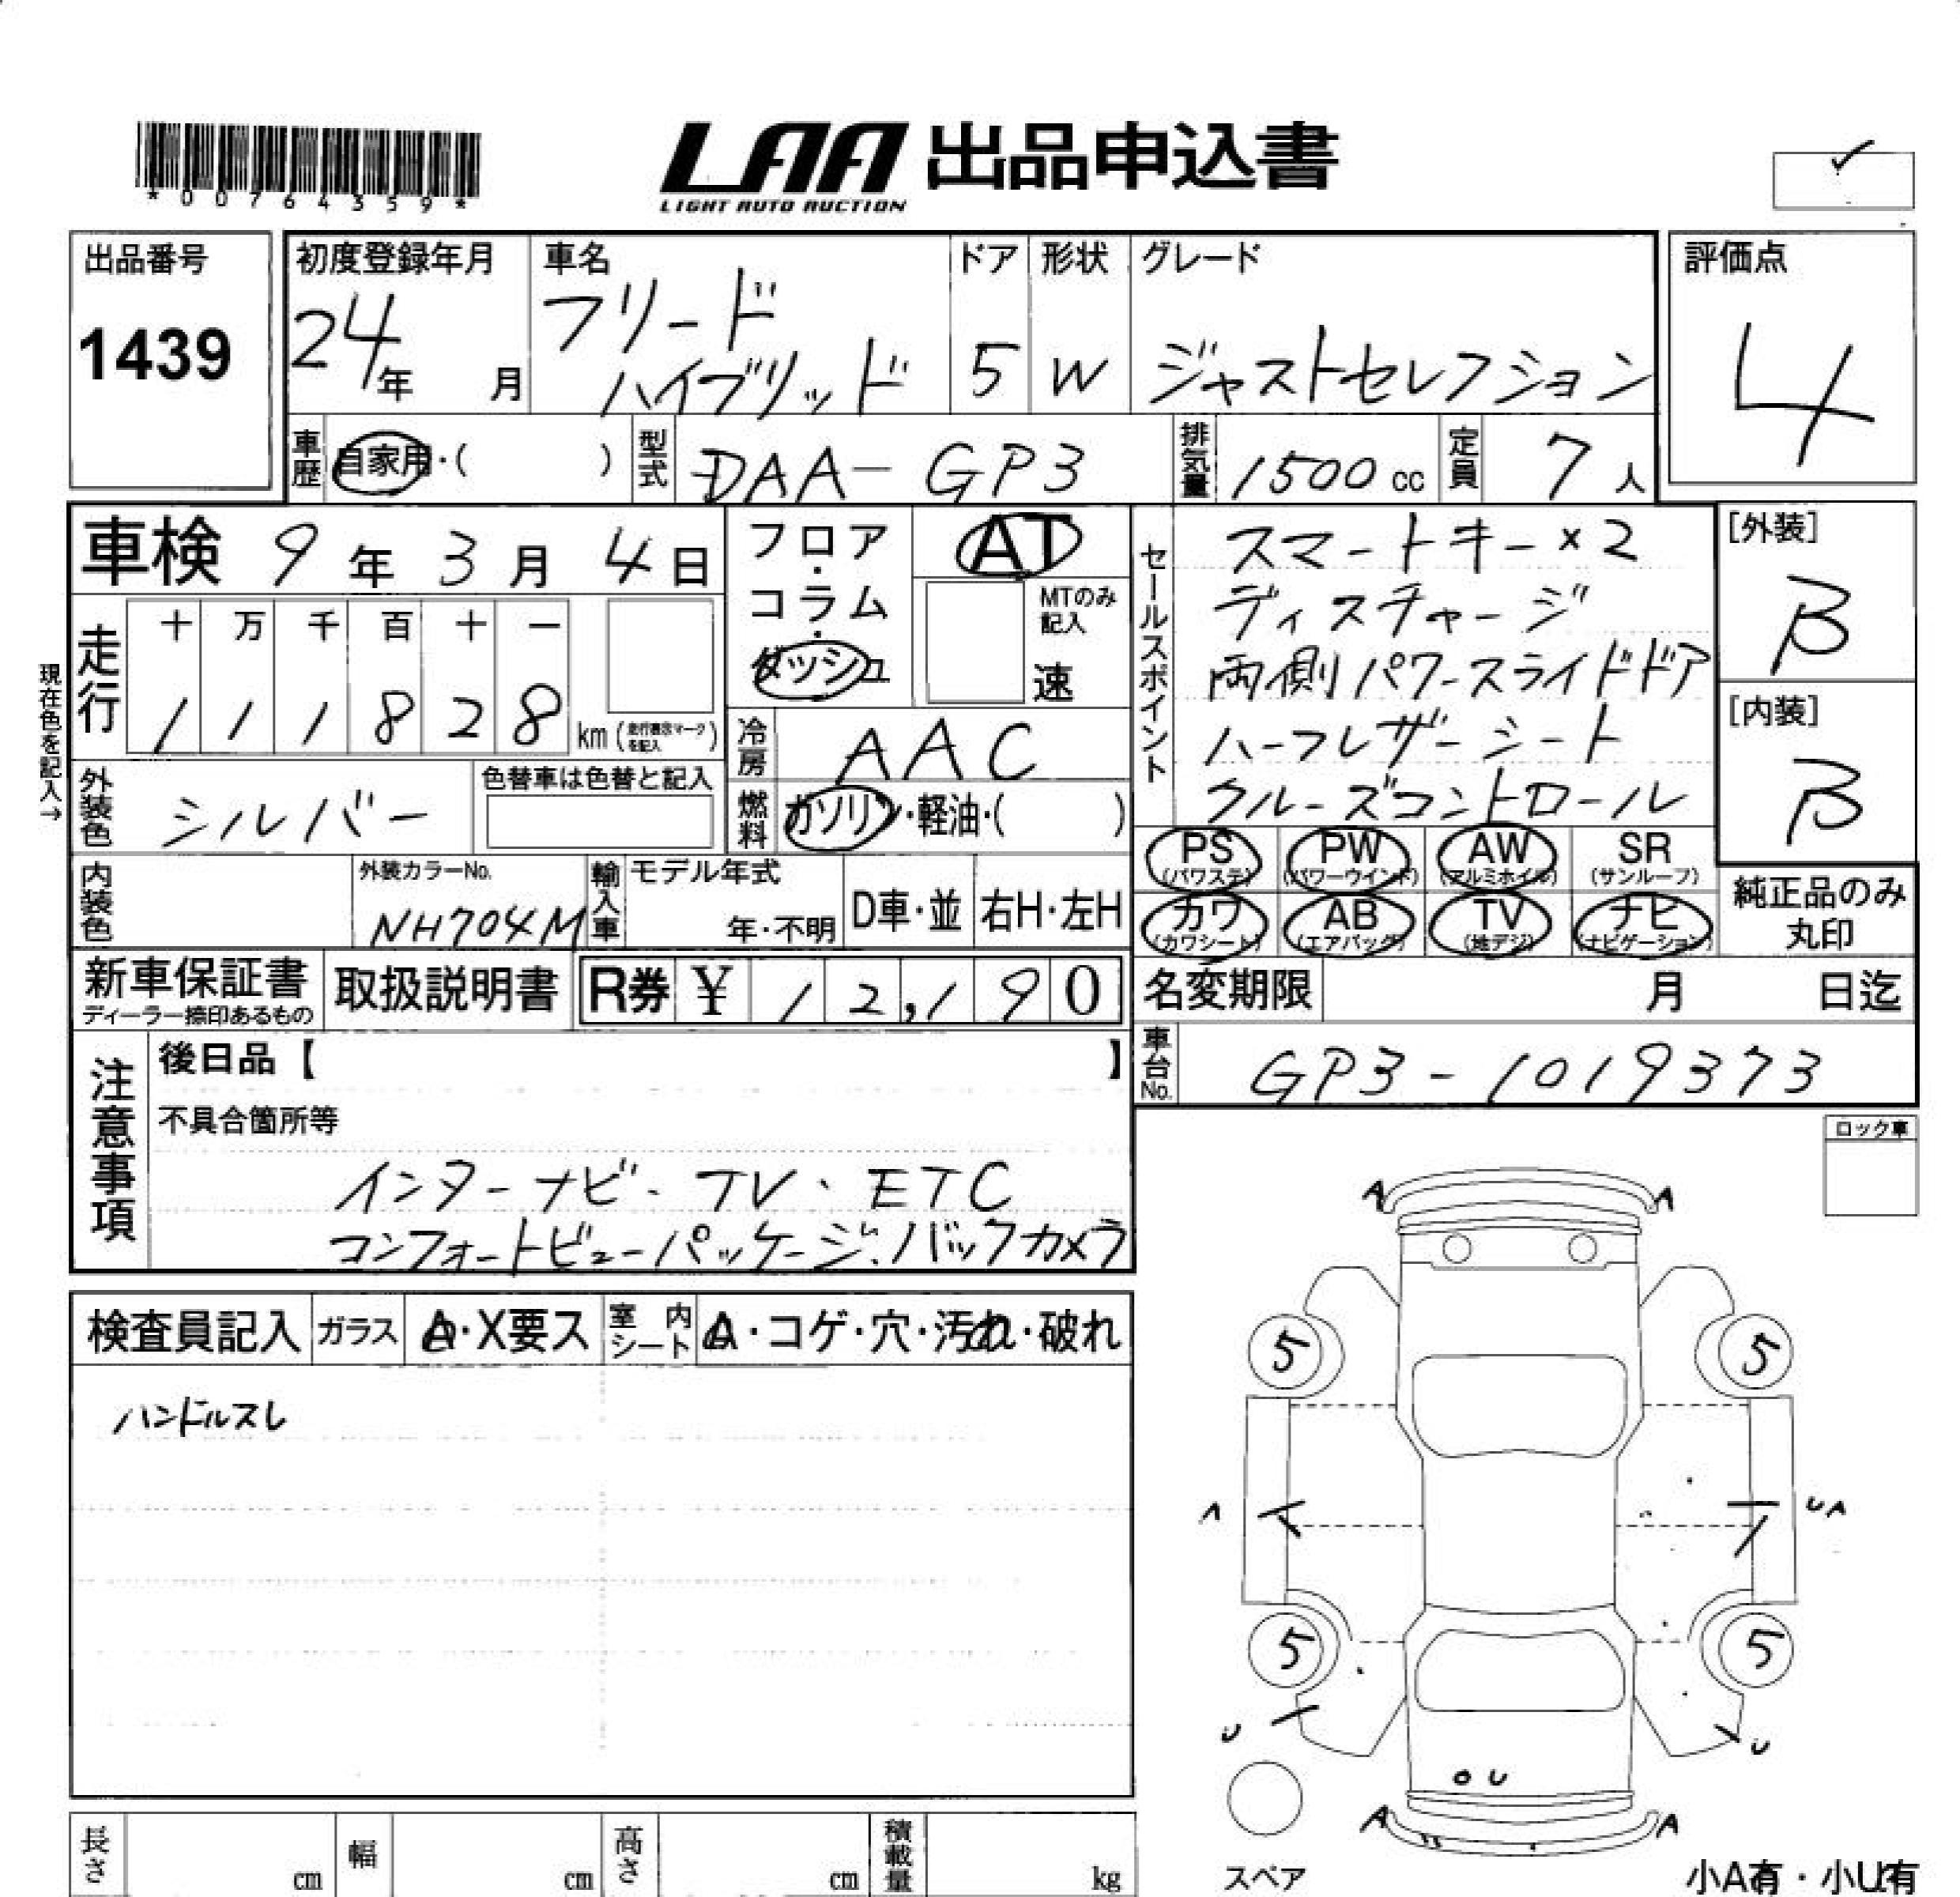 *00764359*
LAA 出品申込書
LIGHT AUTO AUCTION
出品番号
1439
初度登録年月
24年 月
車名
フリード
ハイブリッド
ドア
5
形状
W
グレード
ジャストセレクション
評価点
4
車歴 自家用・( )
型式 DAA-GP3
排気量 1500cc
定員 7人
車検 9年3月4日
走行
十 万 千 百 十 一
1 1 1 8 2 8 km(走行表示マークを記入)
現在色を記入→
外装色 シルバー
色替車は色替と記入
フロア・コラム・ダッシュ
AT
MTのみ記入
速
冷房 AAC
燃料 ガソリン・軽油・( )
セールスポイント
スマートキー×2
ディスチャージ
両側パワースライドドア
ハーフレザーシート
クルーズコントロール
[外装]
B
[内装]
B
PS (パワステ) PW (パワーウインド) AW (アルミホイル) SR (サンルーフ)
カワ (カワシート) AB (エアバッグ) TV (地デジ) ナビ (ナビゲーション)
純正品のみ丸印
内装色
外装カラーNo.
NH704M
輸入車 モデル年式
年・不明
D車・並 右H・左H
新車保証書
ディーラー捺印あるもの
取扱説明書
R券 ¥ 12,190
名変期限 月 日迄
車台No. GP3-1019373
注意事項
後日品【 】
不具合箇所等
インターナビ・TV・ETC
コンフォートビューパッケージ・バックカメラ
ロック車
検査員記入 ガラス A・X要ス 室内シート A・コゲ・穴・汚れ・破れ
ハンドルスレ
A A
5 5
A UA
5 5
U U
U
A A
スペア
小A有・小U有
長さ cm 幅 cm 高さ cm 積載量 kg